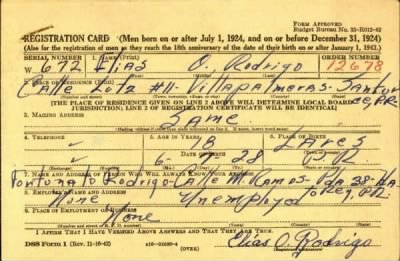 FORM APPROVED
Budget Bureau No. 33-R012-42
REGISTRATION CARD (Men born on or after July 1, 1924, and on or before December 31, 1924)
(Also for the registration of men as they reach the 18th anniversary of the date of their birth on or after January 1, 1943.)
SERIAL NUMBER 1. NAME (Print) ORDER NUMBER
W 672 Elias O. Rodrigo 12678
2. PLACE OF RESIDENCE (Print)
Calle Lutz #11 - Villapalmeras - Santurce, P.R.
[THE PLACE OF RESIDENCE GIVEN ON LINE 2 ABOVE WILL DETERMINE LOCAL BOARD
JURISDICTION; LINE 2 OF REGISTRATION CERTIFICATE WILL BE IDENTICAL]
3. MAILING ADDRESS
Same
4. TELEPHONE 5. AGE IN YEARS 6. PLACE OF BIRTH
18 Lares
P.R.
7. NAME AND ADDRESS OF PERSON WHO WILL ALWAYS KNOW YOUR ADDRESS
Fortunato Rodrigo - Calle M. Ramos
8. EMPLOYER'S NAME AND ADDRESS
None Unemployed
9. PLACE OF EMPLOYMENT OR BUSINESS
None
I AFFIRM THAT I HAVE VERIFIED ABOVE ANSWERS AND THAT THEY ARE TRUE.
DSS Form 1 (Rev. 11-16-42) (OVER) Elias O. Rodrigo